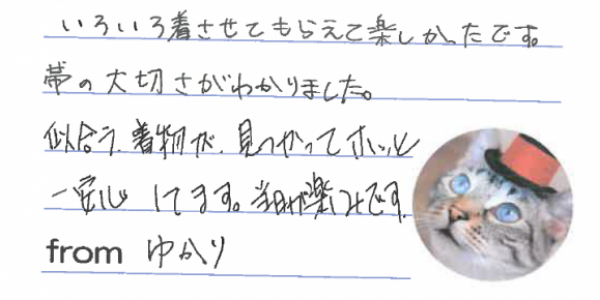 いろいろ着させてもらえて楽しかったです。
帯の大切さがわかりました。
似合う、着物が、見つかってホッと
一安心してます。当日が楽しみです。
from ゆかり